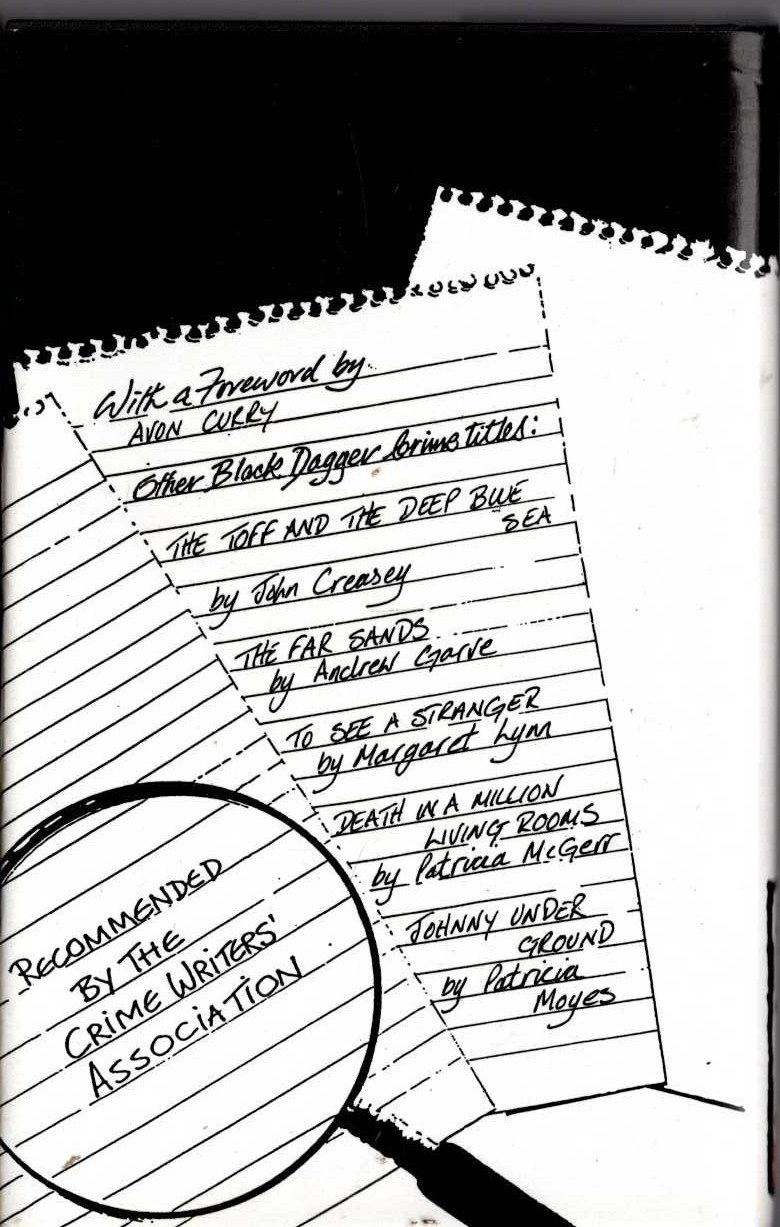 With a Foreword by
AVON CURRY
Other Black Dagger Crime titles:
THE TOFF AND THE DEEP BLUE
SEA
by John Creasey
THE FAR SANDS
by Andrew Garve
TO SEE A STRANGER
by Margaret Lynn
DEATH IN A MILLION
LIVING ROOMS
by Patricia McGerr
JOHNNY UNDER
GROUND
by Patricia
Moyes
RECOMMENDED
BY THE
CRIME WRITERS'
ASSOCIATION